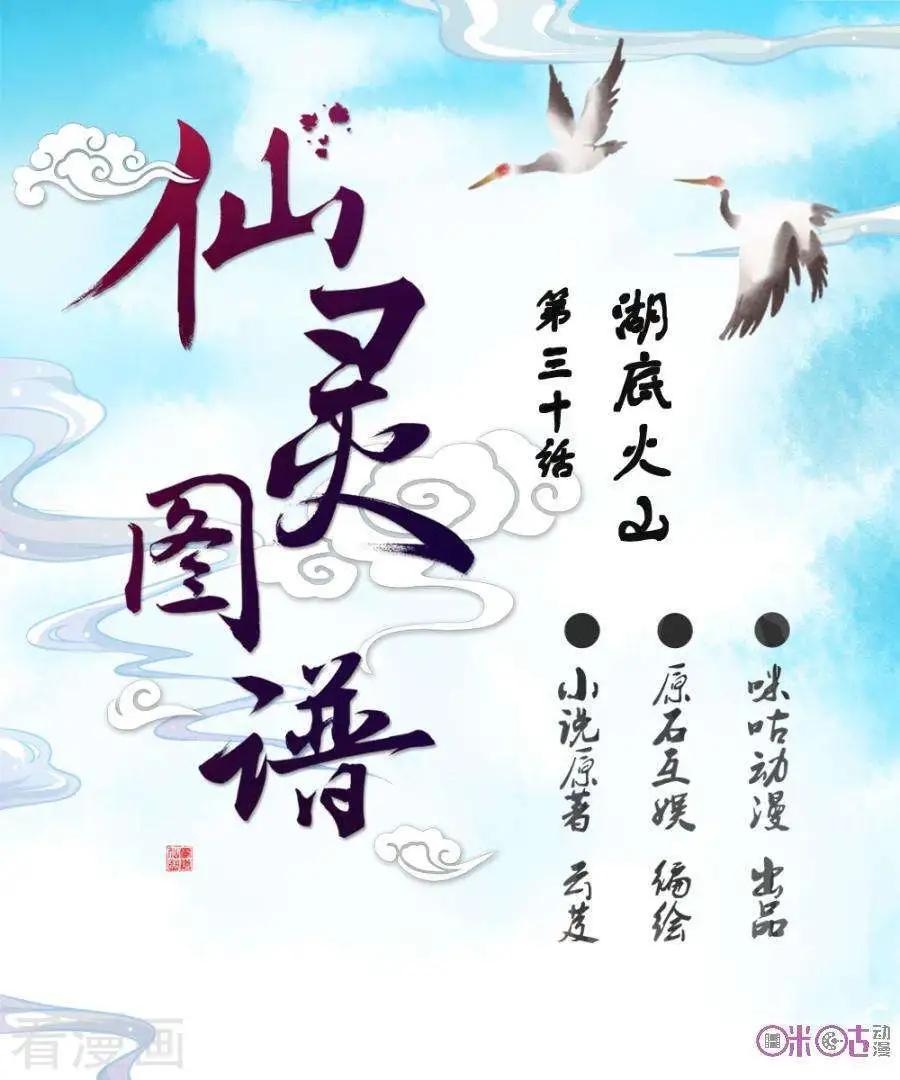 仙灵图谱
湖底火山
第三十话
咪咕动漫 出品
原石互娱 编绘
小说原著 云芨
看漫画
咪咕动漫